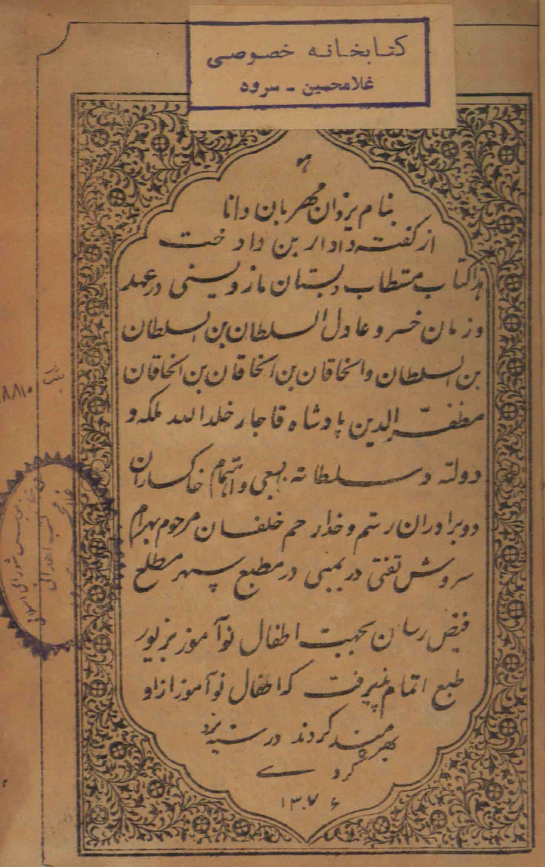 کتابخانه خصوصی
غلامحسین - سرود
هو
بنام یزدان مهربان دانا
از گفته دادار بن داد دخت
هذا کتاب مستطاب دبستان مازدیسنی در عهد
و زمان خسرو عادل السلطان بن السلطان
بن السلطان والخاقان بن الخاقان بن الخاقان
مظفر الدین پادشاه قاجار خلد الله ملکه و
دولته و سلطانه بسعی و اهتمام خاکساران
دو برادران رستم و خدارحم خلفان مرحوم بهرام
سروش تفتی در بمبئی در مطبع سپهر مطلع
فیض رسان بجهت اطفال نوآموز بزیور
طبع اتمام پذیرفت که اطفال نوآموز از او
بهره‌مند گردند در سنه یزد
گردی
۱۳۷۶
۸۸۱۰